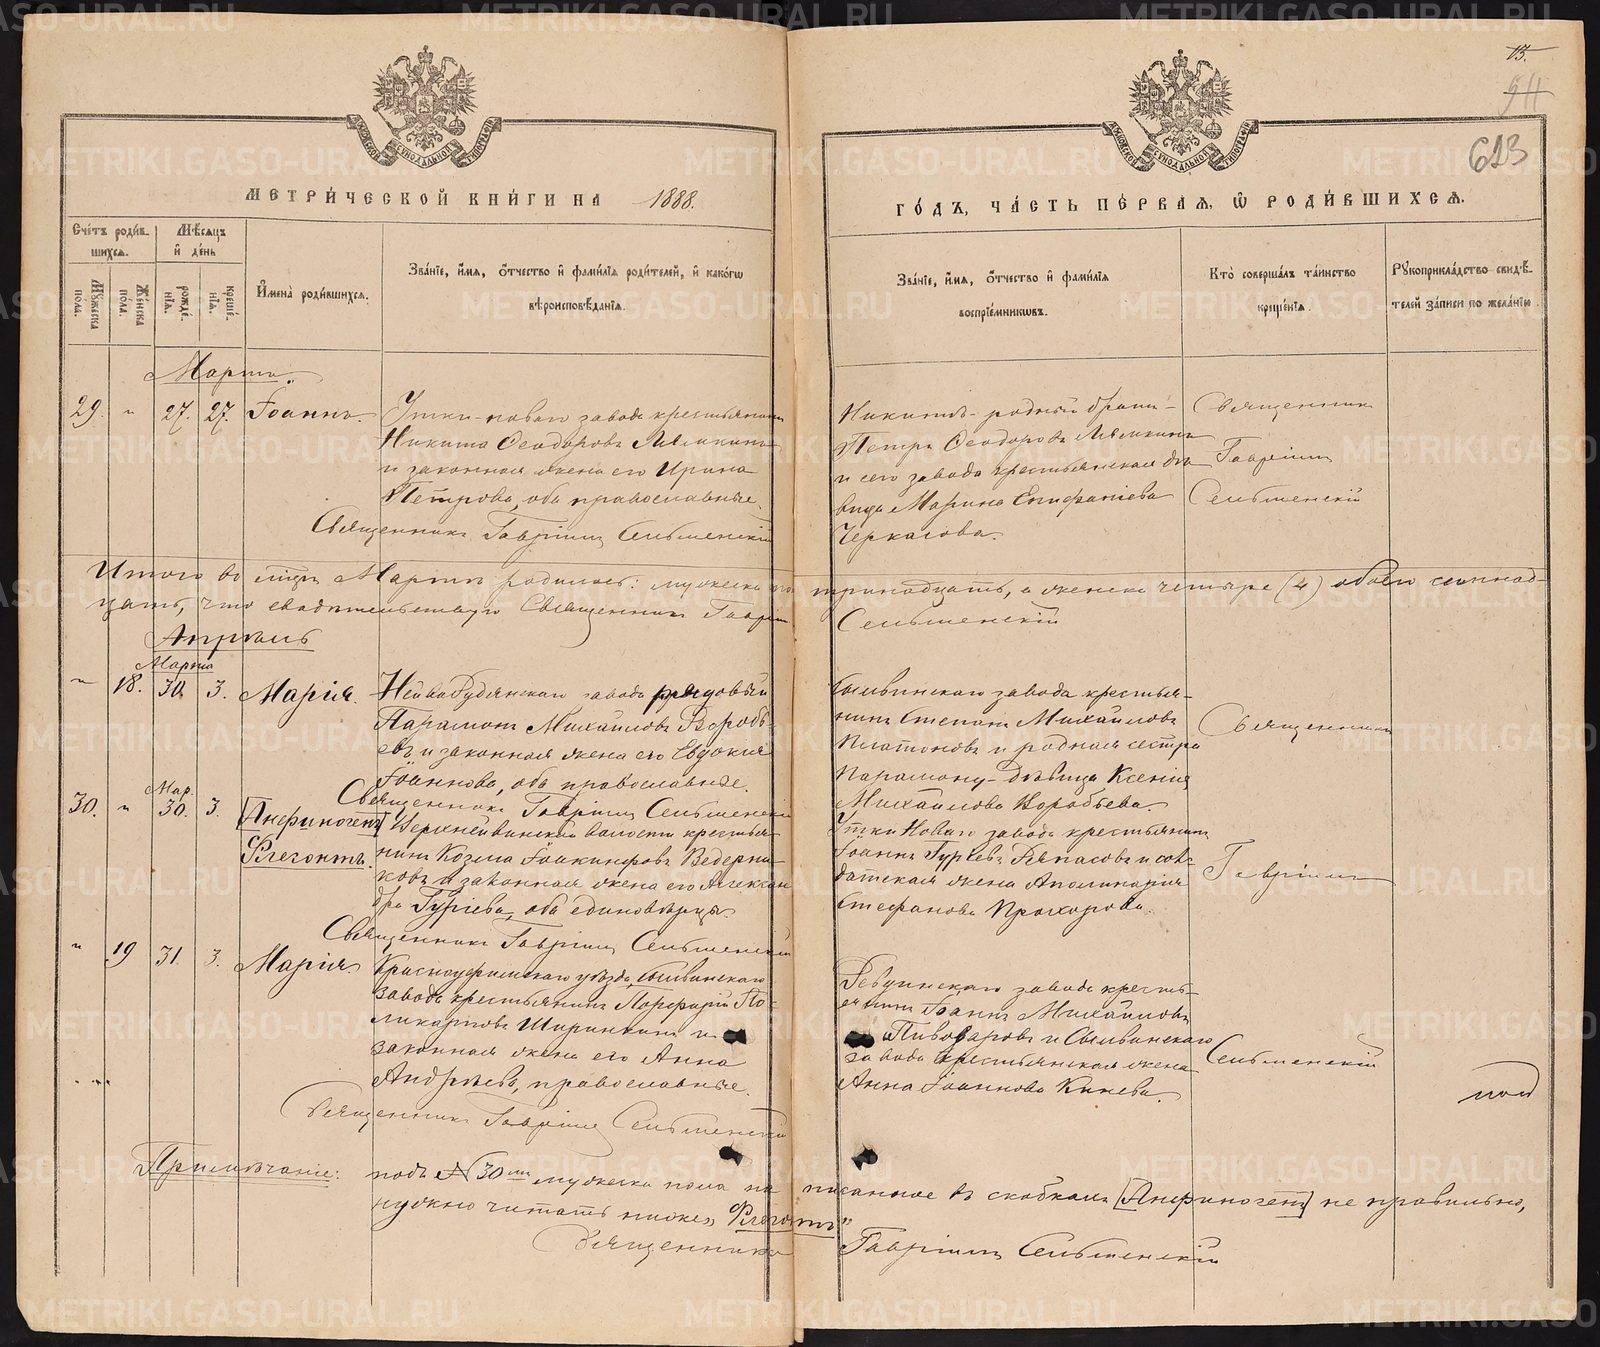 15.
94
613
МЕТРИ́ЧЕСКОЙ КНИ́ГИ НА 1888.
ГО́ДЪ, ЧА́СТЬ ПЕ́РВАЯ, Ѿ РОДИ́ВШИХСЯ.
Сче́тъ роди́вшихся.
Мѣсяцъ и де́нь
Му́жеска пола.
Же́нска пола.
рожде́нія.
креще́нія.
Имена̀ роди́вшихся.
Зва́ніе, и́мя, о́тчество и фами́лія роди́телей, и како́гѡ вѣроисповѣ́данія.
Зва́ніе, и́мя, о́тчество и фами́лія воспріе́мникѡвъ.
Кто̀ соверша́лъ та́инство креще́нія.
Рꙋкоприкла́дство свидѣ́телей за́писи по жела́нію.
Марта.
29. " 27. 27. Іоаннъ.
Утки-новаго завода крестьянинъ
Никита Ѳеодоровъ
и законная жена его Ирина
Петрова, оба православные.
Священникъ Гавріилъ Сельменскій
Никитѣ-родный братъ-
Петръ Ѳеодоровъ
и сего завода крестьянская дѣ-
вица Марина Епифаніева
Черкасова.
Священникъ
Гавріилъ
Сельменскій
Итого въ мцѣ Мартѣ родилось: мужеска тринадцать, а женска четыре (4) обоего семнад-
цать, что свидѣтельствую Священникъ Гавріилъ Сельменскій
Апрѣль
Марта
" 18. 30. 3. Марія.
НейвоРудянскаго завода рядовый
Парамонъ Михайловъ Воробь-
евъ и законная жена его Евдокія
Іоаннова, оба православные.
Священникъ Гавріилъ Сельменскій
Сылвинскаго завода крестья-
нинъ Стефанъ Михайловъ
Платоновъ и родная сестра
Парамону-дѣвица Ксенія
Михайлова Воробьева.
Священникъ
Мар.
30. " 30. 3. [Анфиногенъ]
Флегонтъ.
Верхнейвинской волости крестья-
нинъ Козма Іоакинфовъ Ведерни-
ковъ и законная жена его Алексан-
дра Гуріева, оба единовѣрцы.
Священникъ Гавріилъ Сельменскій
Утки Новаго завода крестьянинъ
Іоаннъ Гурьевъ и сол-
датская жена Аполинарія
Стефанова Прохорова.
Гавріилъ
" 19 31. 3. Марія
Красноуфимскаго уѣзда, Сылвинскаго
завода крестьянинъ Порфирій По-
ликарповъ Ширинкинъ и
законная жена его Анна
Андреева, православные.
Священникъ Гавріилъ Сельменскій
Ревдинскаго завода кресть-
янинъ Іоаннъ Михайловъ
Пивоваровъ и Сылвинскаго
завода крестьянская жена
Анна Іоаннова Кинева.
Сельменскій
Примѣчаніе: подъ № 30мъ мужеска пола написанное въ скобкахъ [Анфиногенъ] не правильно,
нужно читать ниже "Флегонтъ"
Священникъ Гавріилъ Сельменскій
METRIKI.GASO-URAL.RU